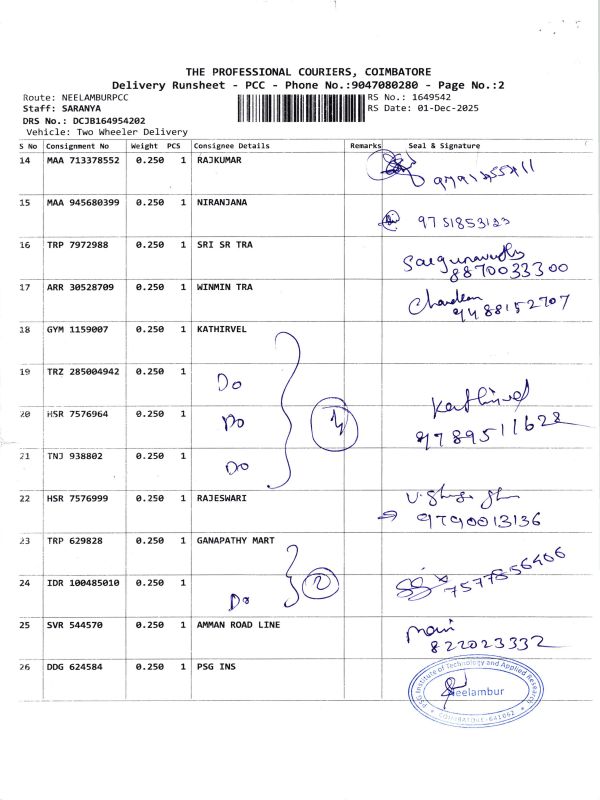 THE PROFESSIONAL COURIERS, COIMBATORE
Delivery Runsheet - PCC - Phone No.:9047080280 - Page No.:2
Route: NEELAMBURPCC RS No.: 1649542
Staff: SARANYA RS Date: 01-Dec-2025
DRS No.: DCJB164954202
Vehicle: Two Wheeler Delivery
S No Consignment No Weight PCS Consignee Details Remarks Seal & Signature
14 MAA 713378552 0.250 1 RAJKUMAR
15 MAA 945680399 0.250 1 NIRANJANA
9751853123
16 TRP 7972988 0.250 1 SRI SR TRA
8870033300
17 ARR 30528709 0.250 1 WINMIN TRA
9488152707
18 GYM 1159007 0.250 1 KATHIRVEL
19 TRZ 285004942 0.250 1 Do
20 HSR 7576964 0.250 1 Do 4 Kathirvel
9789511628
21 TNJ 938802 0.250 1 Do
22 HSR 7576999 0.250 1 RAJESWARI
9790013136
23 TRP 629828 0.250 1 GANAPATHY MART
24 IDR 100485010 0.250 1 Do 2 7577856406
25 SVR 544570 0.250 1 AMMAN ROAD LINE mani
822023332
26 DDG 624584 0.250 1 PSG INS
PSG Institute of Technology and Applied Research
Neelambur
COIMBATORE-641062